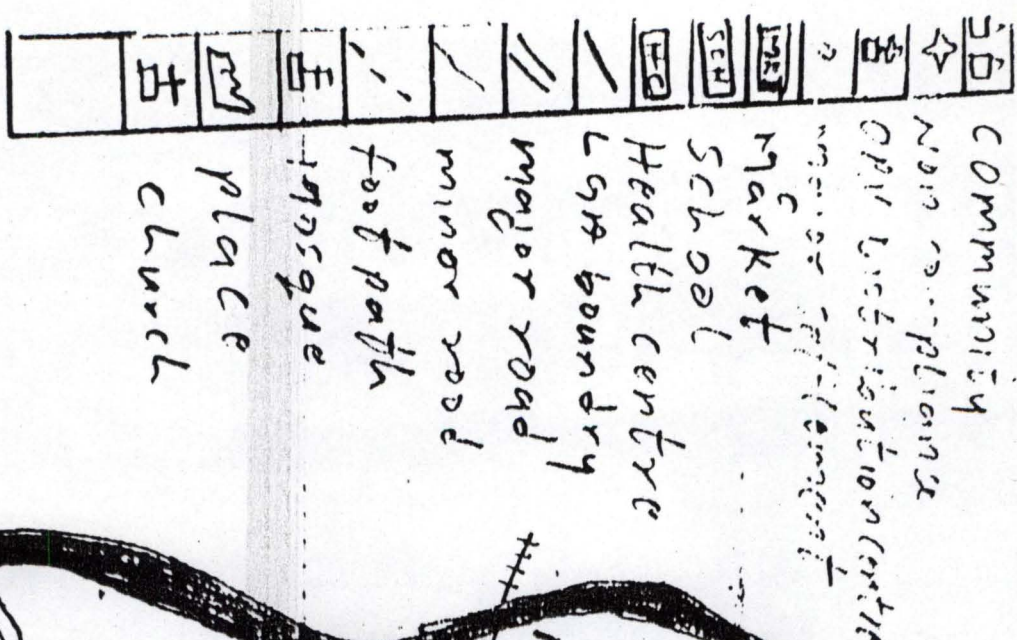 Community
Non compliance
OPV Distribution
MKT Market
SCH School
HC Health centre
LGA boundry
major road
minor road
foot path
mosque
place
church